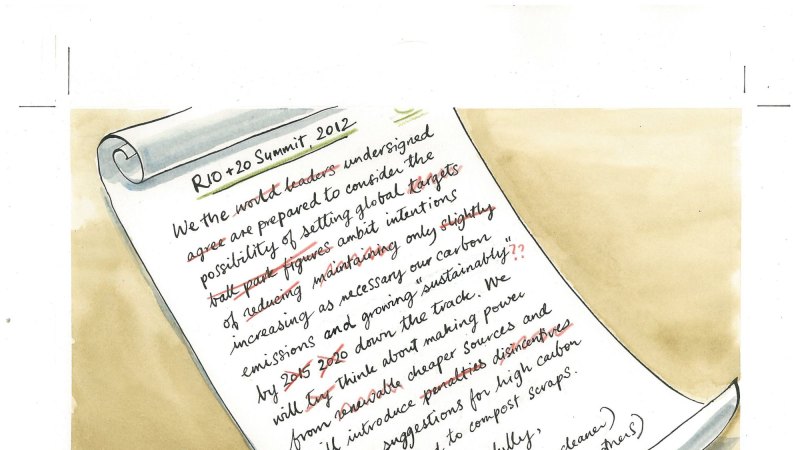 RIO +20 Summit, 2012
We the world leaders undersigned
agree are prepared to consider the
possibility of setting global targets
ball park figures ambit intentions
of reducing maintaining only slightly
increasing as necessary our carbon
emissions and growing "sustainably"??
by 2015 2020 down the track. We
will try think about making power
from renewable cheaper sources and
introduce penalties disincentives
suggestions for high carbon
to compost scraps.
cleaner)